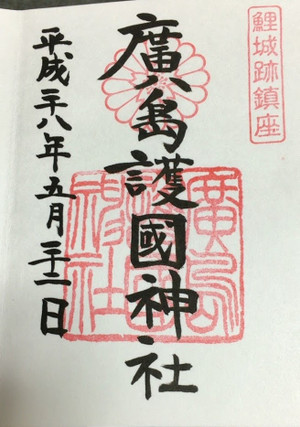 鯉城跡鎮座
廣島護國神社
平成二十八年五月二十二日
廣島護國神社